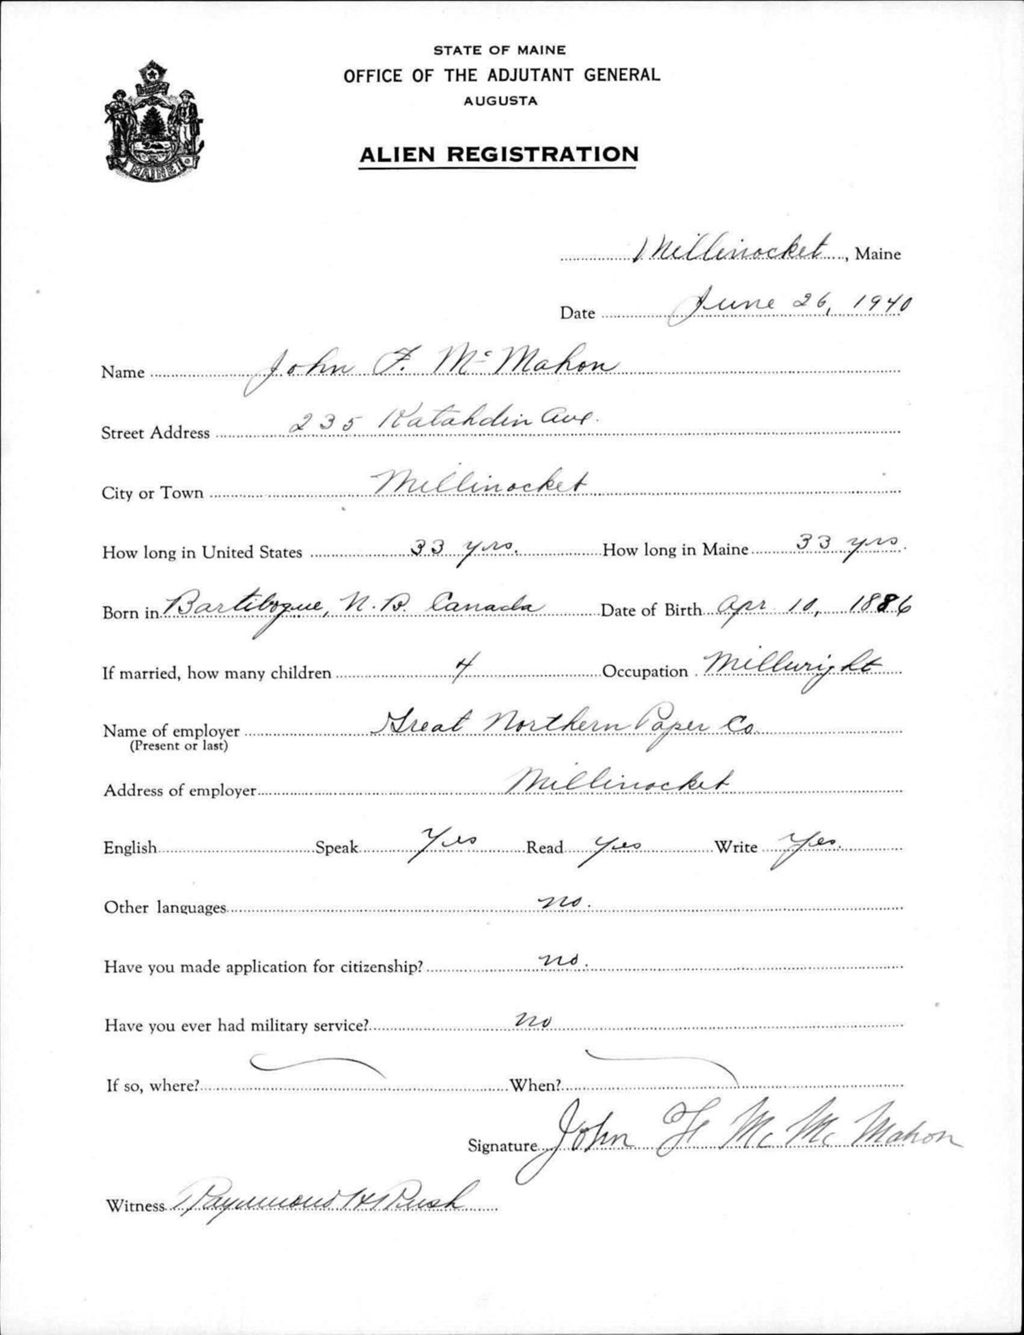 STATE OF MAINE
OFFICE OF THE ADJUTANT GENERAL
AUGUSTA
ALIEN REGISTRATION
MAINE
Millinocket, Maine
Date June 26, 1940
Name John F. Mc Mahon
Street Address 235 Katahdin Ave.
City or Town Millinocket
How long in United States 33 yrs. How long in Maine 33 yrs.
Born in Bartibogue, N.B. Canada Date of Birth Apr 10, 1886
If married, how many children 4 Occupation Millwright
Name of employer Great Northern Paper Co.
(Present or last)
Address of employer Millinocket
English Speak Yes Read Yes Write Yes.
Other languages no.
Have you made application for citizenship? no.
Have you ever had military service? no
If so, where? When?
Signature John F Mc Mc Mahon
Witness Raymond H Rush